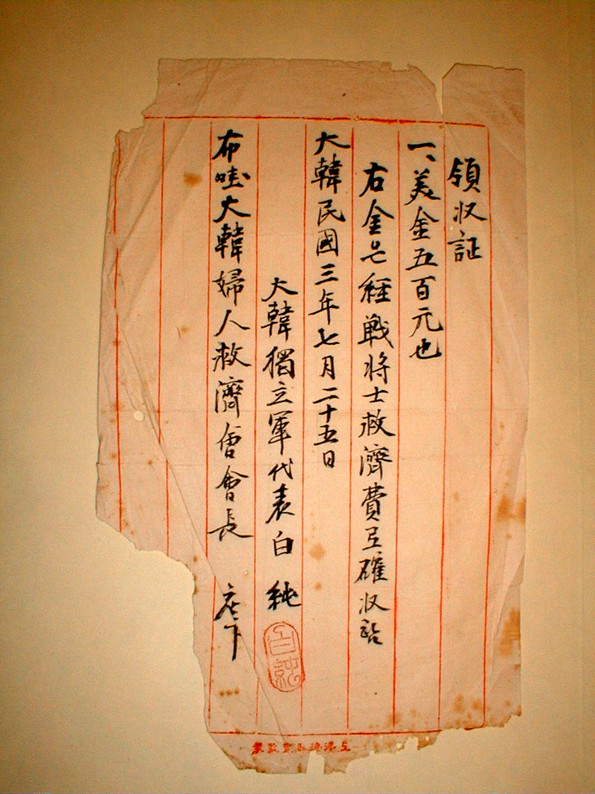 領収証
一、美金五百元也
右金은經戦将士救濟費로確収홈
大韓民國三年七月二十五日
大韓獨立軍代表白純
白純
布哇大韓婦人救濟會會長 座下